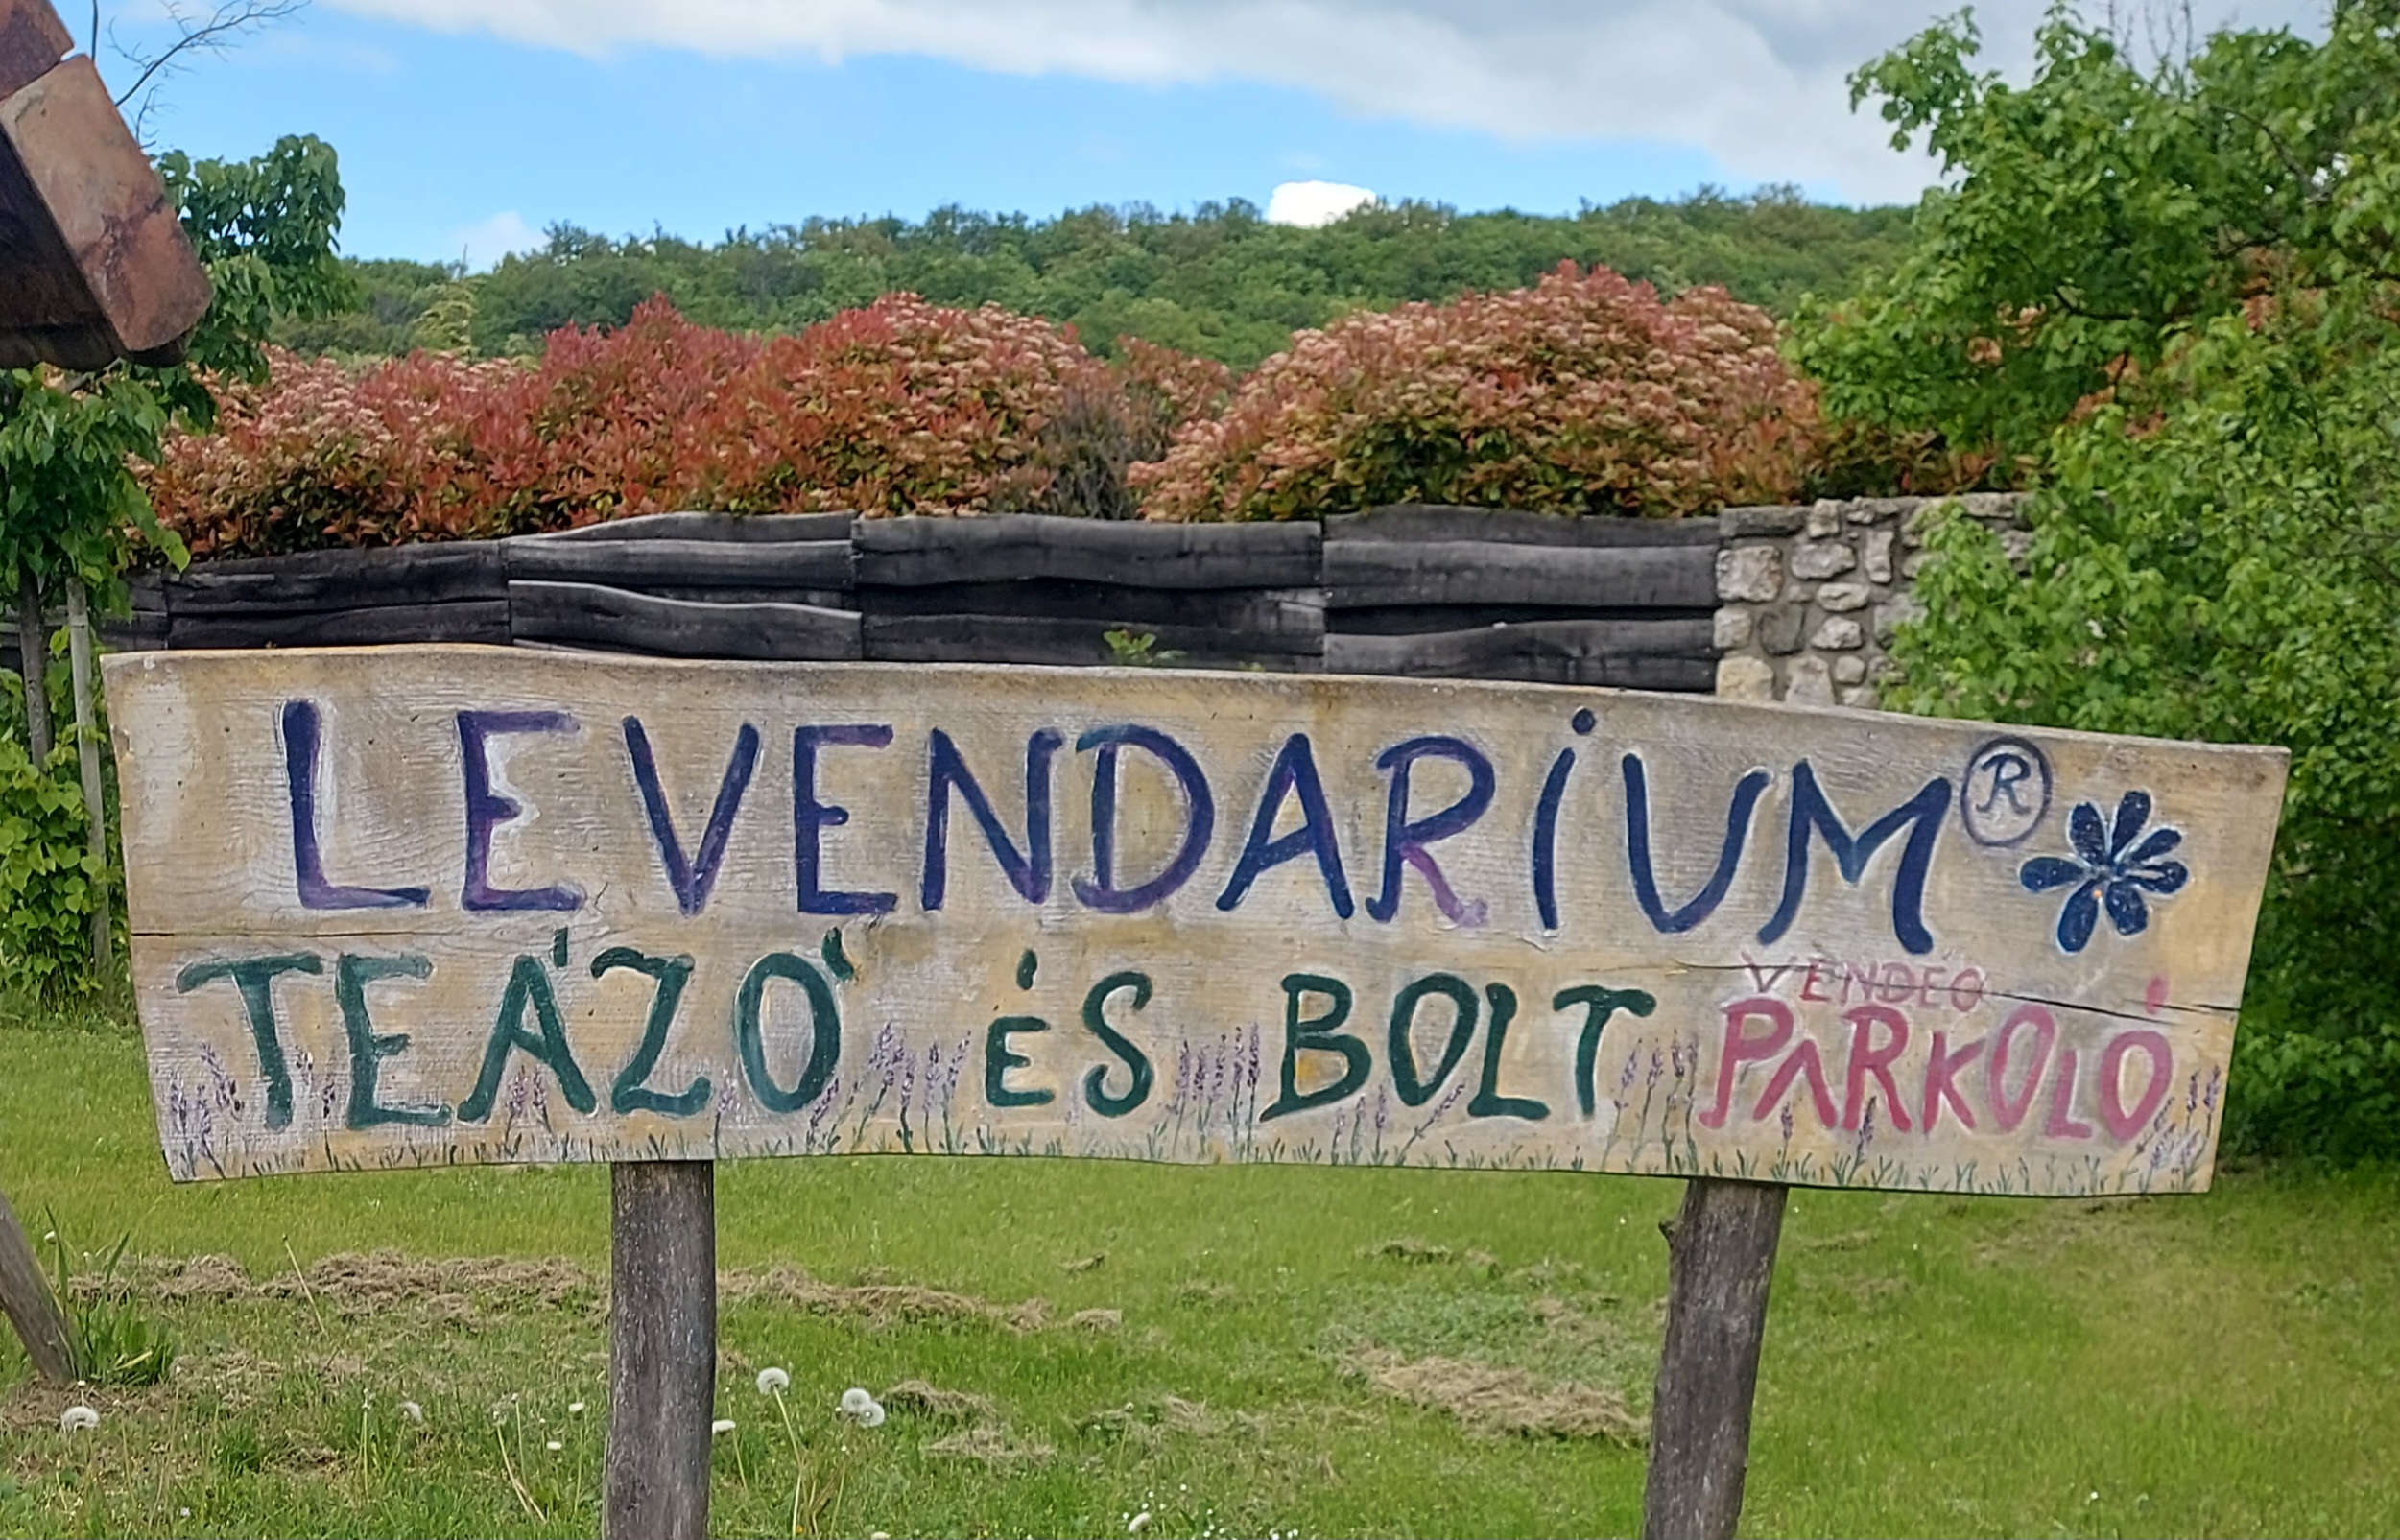 LEVENDARiUM®
TEÁZÓ ÉS BOLT
VENDÉG
PARKOLÓ